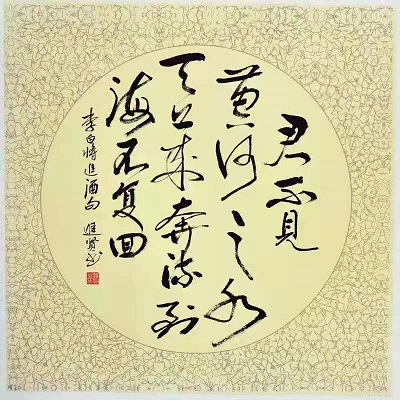 君不見
黄河之水
天上来奔流到
海不复回
李白將進酒句 進賢书